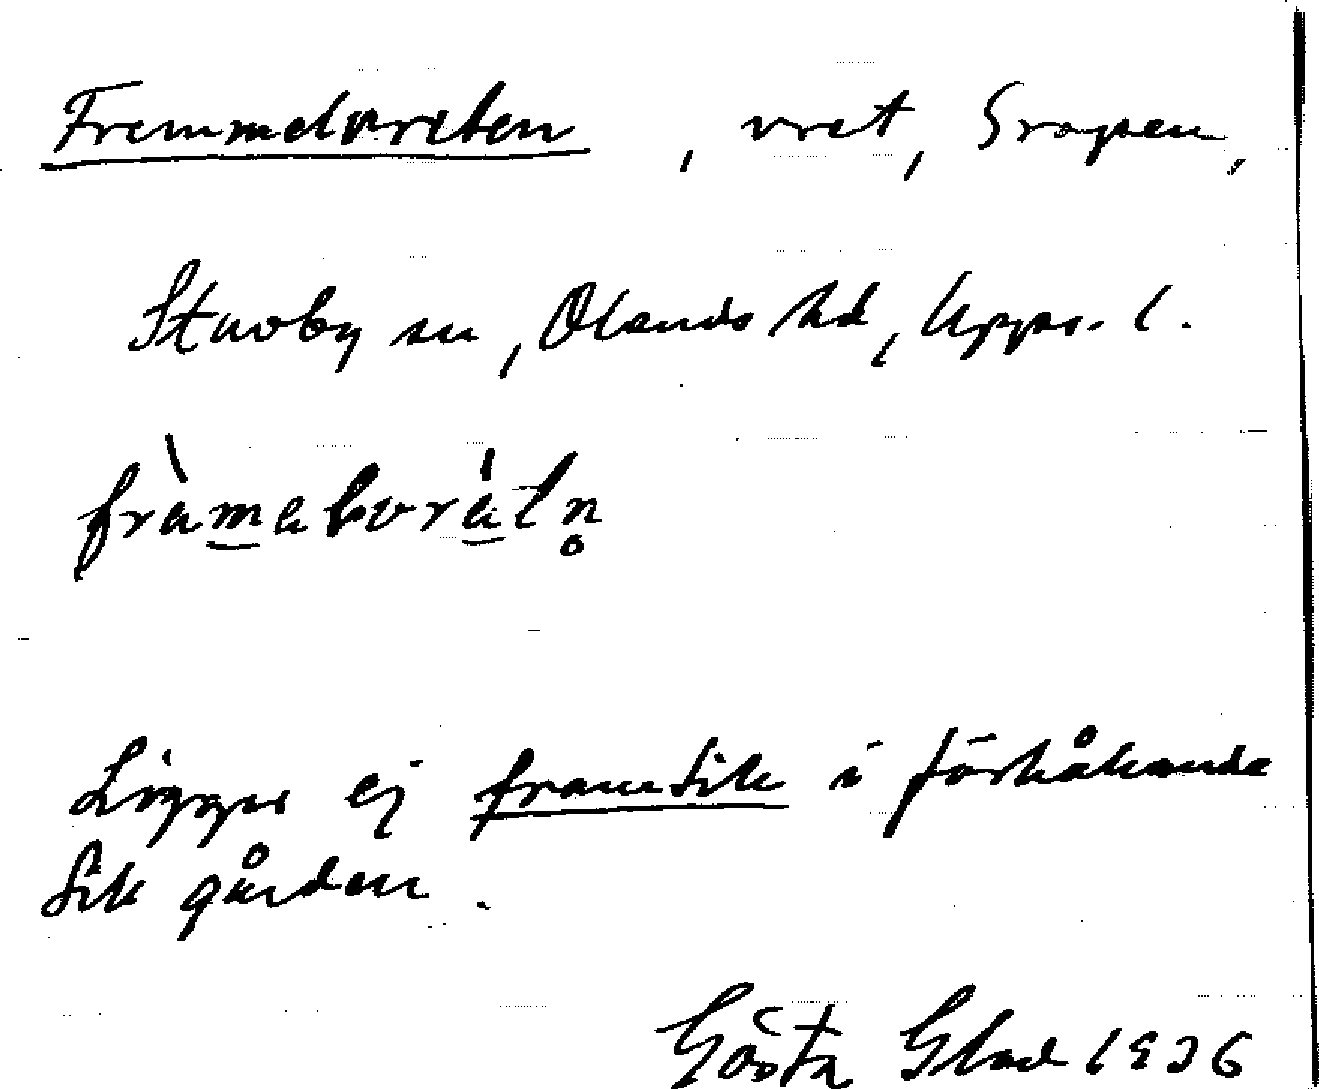 Fremmelvreten, vret, Gropen,
Stavby sn, Olands hd, Upps. l.
Ligger ej framtill i förhållande
till gården.
Gösta Glad 1936